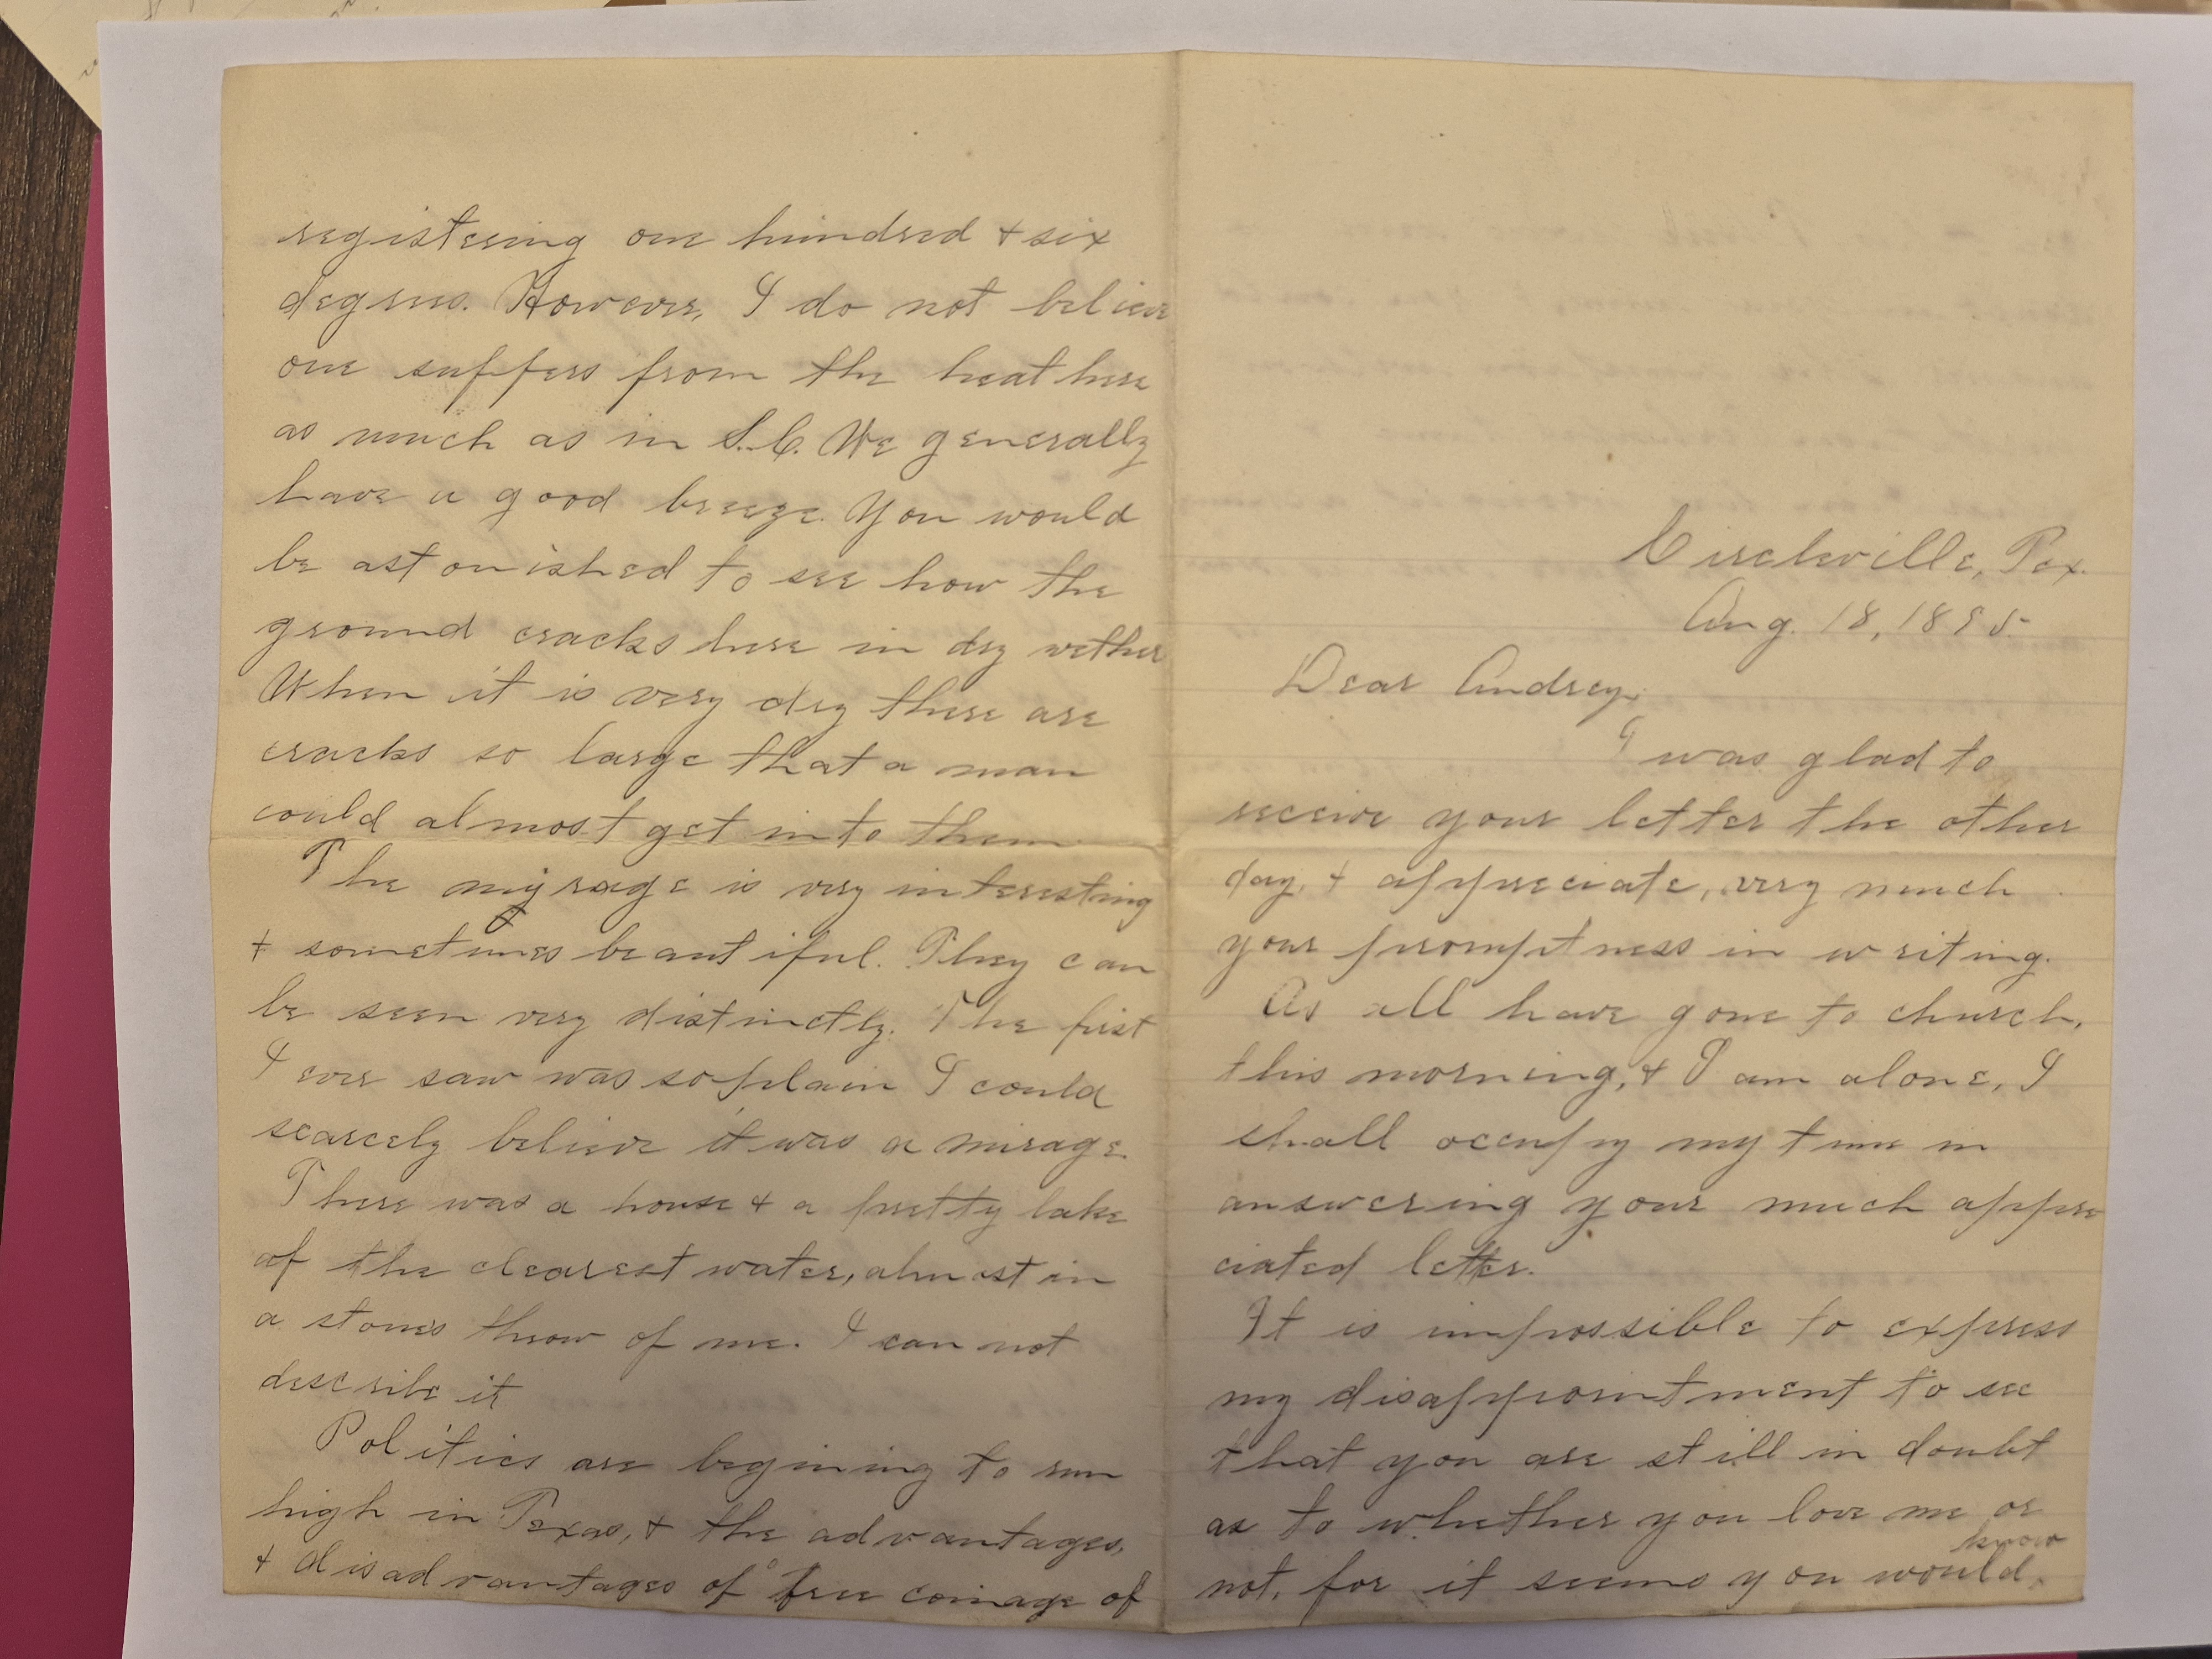 Circleville, Tex.
Aug. 18, 1895.
Dear Audrey,
I was glad to
receive your letter the other
day, & appreciate, very much
your promptness in writing.
As all have gone to church,
this morning, & I am alone, I
shall occupy my time in
answering your much appre
ciated letter.
It is impossible to express
my disappointment to see
that you are still in doubt
as to whether you love me or
know
not, for it seems you would
registering one hundred & six
degrees. However, I do not believe
one suffers from the heat here
as much as in S.C. We generally
have a good breeze. You would
be astonished to see how the
ground cracks here in dry wether
When it is very dry there are
cracks so large that a man
could almost get into them
The myrage is very interesting
& sometimes beautiful. They can
be seen very distinctly. The first
I ever saw was so plain I could
scarcely believe it was a mirage.
There was a house & a pretty lake
of the clearest water, almost in
a stones throw of me. I can not
describe it
Politics are begining to run
high in Texas, & the advantages,
& disadvantages of free coinage of